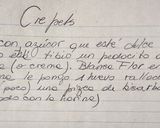 Crepels
con azúcar que esté dulce
esté tibio un pedacito d
(o crema). Blanca Flor e
se le pongo 1 huevo rallado
poco) una pizca de bicarb
todo con la harina)